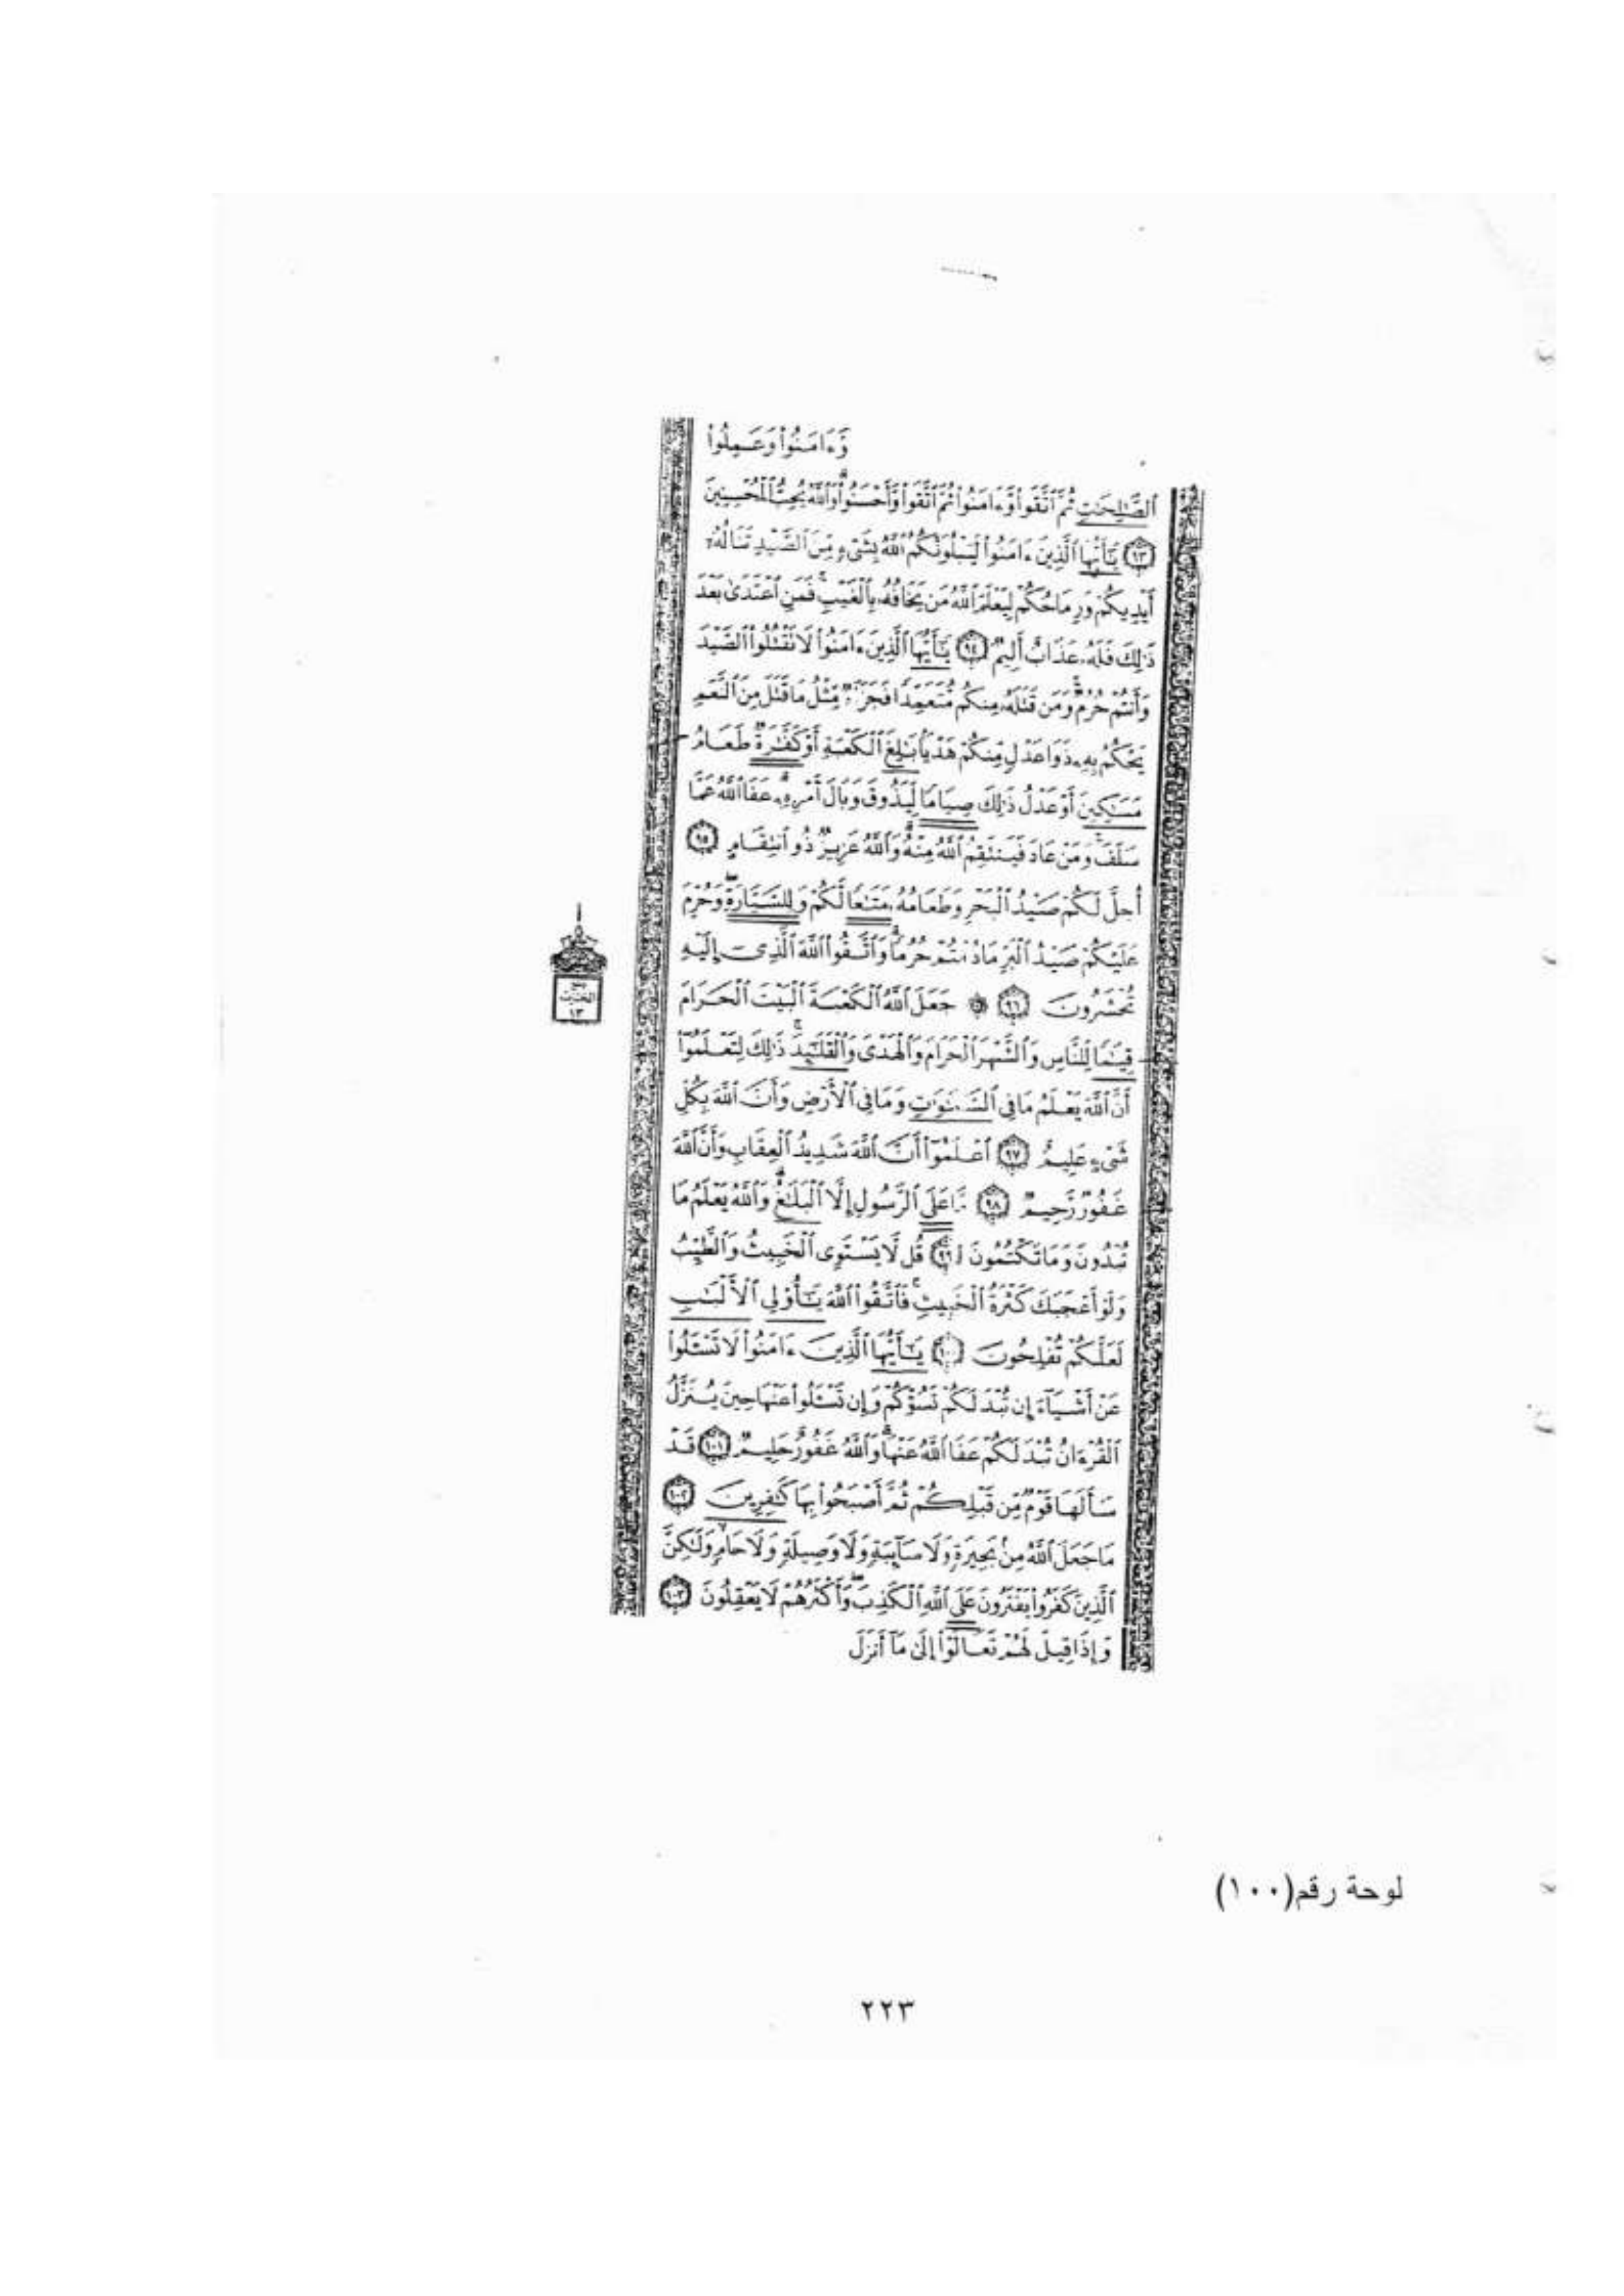 وَّءَامَنُوا۟ وَعَمِلُوا۟
ٱلصَّـٰلِحَـٰتِ ثُمَّ ٱتَّقَوا۟ وَّءَامَنُوا۟ ثُمَّ ٱتَّقَوا۟ وَّأَحْسَنُوا۟ۗ وَٱللَّهُ يُحِبُّ ٱلْمُحْسِنِينَ
﴿٩٣﴾ يَـٰٓأَيُّهَا ٱلَّذِينَ ءَامَنُوا۟ لَيَبْلُوَنَّكُمُ ٱللَّهُ بِشَىْءٍ مِّنَ ٱلصَّيْدِ تَنَالُهُۥٓ
أَيْدِيكُمْ وَرِمَاحُكُمْ لِيَعْلَمَ ٱللَّهُ مَن يَخَافُهُۥ بِٱلْغَيْبِۚ فَمَنِ ٱعْتَدَىٰ بَعْدَ
ذَٰلِكَ فَلَهُۥ عَذَابٌ أَلِيمٌ ﴿٩٤﴾ يَـٰٓأَيُّهَا ٱلَّذِينَ ءَامَنُوا۟ لَا تَقْتُلُوا۟ ٱلصَّيْدَ
وَأَنتُمْ حُرُمٌۚ وَمَن قَتَلَهُۥ مِنكُم مُّتَعَمِّدًا فَجَزَآءٌ مِّثْلُ مَا قَتَلَ مِنَ ٱلنَّعَمِ
يَحْكُمُ بِهِۦ ذَوَا عَدْلٍ مِّنكُمْ هَدْيًۢا بَـٰلِغَ ٱلْكَعْبَةِ أَوْ كَفَّـٰرَةٌ طَعَامُ
مَسَـٰكِينَ أَوْ عَدْلُ ذَٰلِكَ صِيَامًا لِّيَذُوقَ وَبَالَ أَمْرِهِۦۗ عَفَا ٱللَّهُ عَمَّا
سَلَفَۚ وَمَنْ عَادَ فَيَنتَقِمُ ٱللَّهُ مِنْهُۗ وَٱللَّهُ عَزِيزٌ ذُو ٱنتِقَامٍ ﴿٩٥﴾
أُحِلَّ لَكُمْ صَيْدُ ٱلْبَحْرِ وَطَعَامُهُۥ مَتَـٰعًا لَّكُمْ وَلِلسَّيَّارَةِۖ وَحُرِّمَ
عَلَيْكُمْ صَيْدُ ٱلْبَرِّ مَا دُمْتُمْ حُرُمًاۗ وَٱتَّقُوا۟ ٱللَّهَ ٱلَّذِىٓ إِلَيْهِ
تُحْشَرُونَ ﴿٩٦﴾ ۞ جَعَلَ ٱللَّهُ ٱلْكَعْبَةَ ٱلْبَيْتَ ٱلْحَرَامَ
قِيَـٰمًا لِّلنَّاسِ وَٱلشَّهْرَ ٱلْحَرَامَ وَٱلْهَدْىَ وَٱلْقَلَـٰٓئِدَۚ ذَٰلِكَ لِتَعْلَمُوٓا۟
أَنَّ ٱللَّهَ يَعْلَمُ مَا فِى ٱلسَّمَـٰوَٰتِ وَمَا فِى ٱلْأَرْضِ وَأَنَّ ٱللَّهَ بِكُلِّ
شَىْءٍ عَلِيمٌ ﴿٩٧﴾ ٱعْلَمُوٓا۟ أَنَّ ٱللَّهَ شَدِيدُ ٱلْعِقَابِ وَأَنَّ ٱللَّهَ
غَفُورٌ رَّحِيمٌ ﴿٩٨﴾ مَّا عَلَى ٱلرَّسُولِ إِلَّا ٱلْبَلَـٰغُۗ وَٱللَّهُ يَعْلَمُ مَا
تُبْدُونَ وَمَا تَكْتُمُونَ ﴿٩٩﴾ قُل لَّا يَسْتَوِى ٱلْخَبِيثُ وَٱلطَّيِّبُ
وَلَوْ أَعْجَبَكَ كَثْرَةُ ٱلْخَبِيثِۚ فَٱتَّقُوا۟ ٱللَّهَ يَـٰٓأُو۟لِى ٱلْأَلْبَـٰبِ
لَعَلَّكُمْ تُفْلِحُونَ ﴿١٠٠﴾ يَـٰٓأَيُّهَا ٱلَّذِينَ ءَامَنُوا۟ لَا تَسْـَٔلُوا۟
عَنْ أَشْيَآءَ إِن تُبْدَ لَكُمْ تَسُؤْكُمْ وَإِن تَسْـَٔلُوا۟ عَنْهَا حِينَ يُنَزَّلُ
ٱلْقُرْءَانُ تُبْدَ لَكُمْ عَفَا ٱللَّهُ عَنْهَاۗ وَٱللَّهُ غَفُورٌ حَلِيمٌ ﴿١٠١﴾ قَدْ
سَأَلَهَا قَوْمٌ مِّن قَبْلِكُمْ ثُمَّ أَصْبَحُوا۟ بِهَا كَـٰفِرِينَ ﴿١٠٢﴾
مَا جَعَلَ ٱللَّهُ مِنۢ بَحِيرَةٍ وَلَا سَآئِبَةٍ وَلَا وَصِيلَةٍ وَلَا حَامٍۙ وَلَـٰكِنَّ
ٱلَّذِينَ كَفَرُوا۟ يَفْتَرُونَ عَلَى ٱللَّهِ ٱلْكَذِبَۖ وَأَكْثَرُهُمْ لَا يَعْقِلُونَ ﴿١٠٣﴾
وَإِذَا قِيلَ لَهُمْ تَعَالَوْا۟ إِلَىٰ مَآ أَنزَلَ
الحزب
١٣
لوحة رقم(١٠٠)
٢٢٣